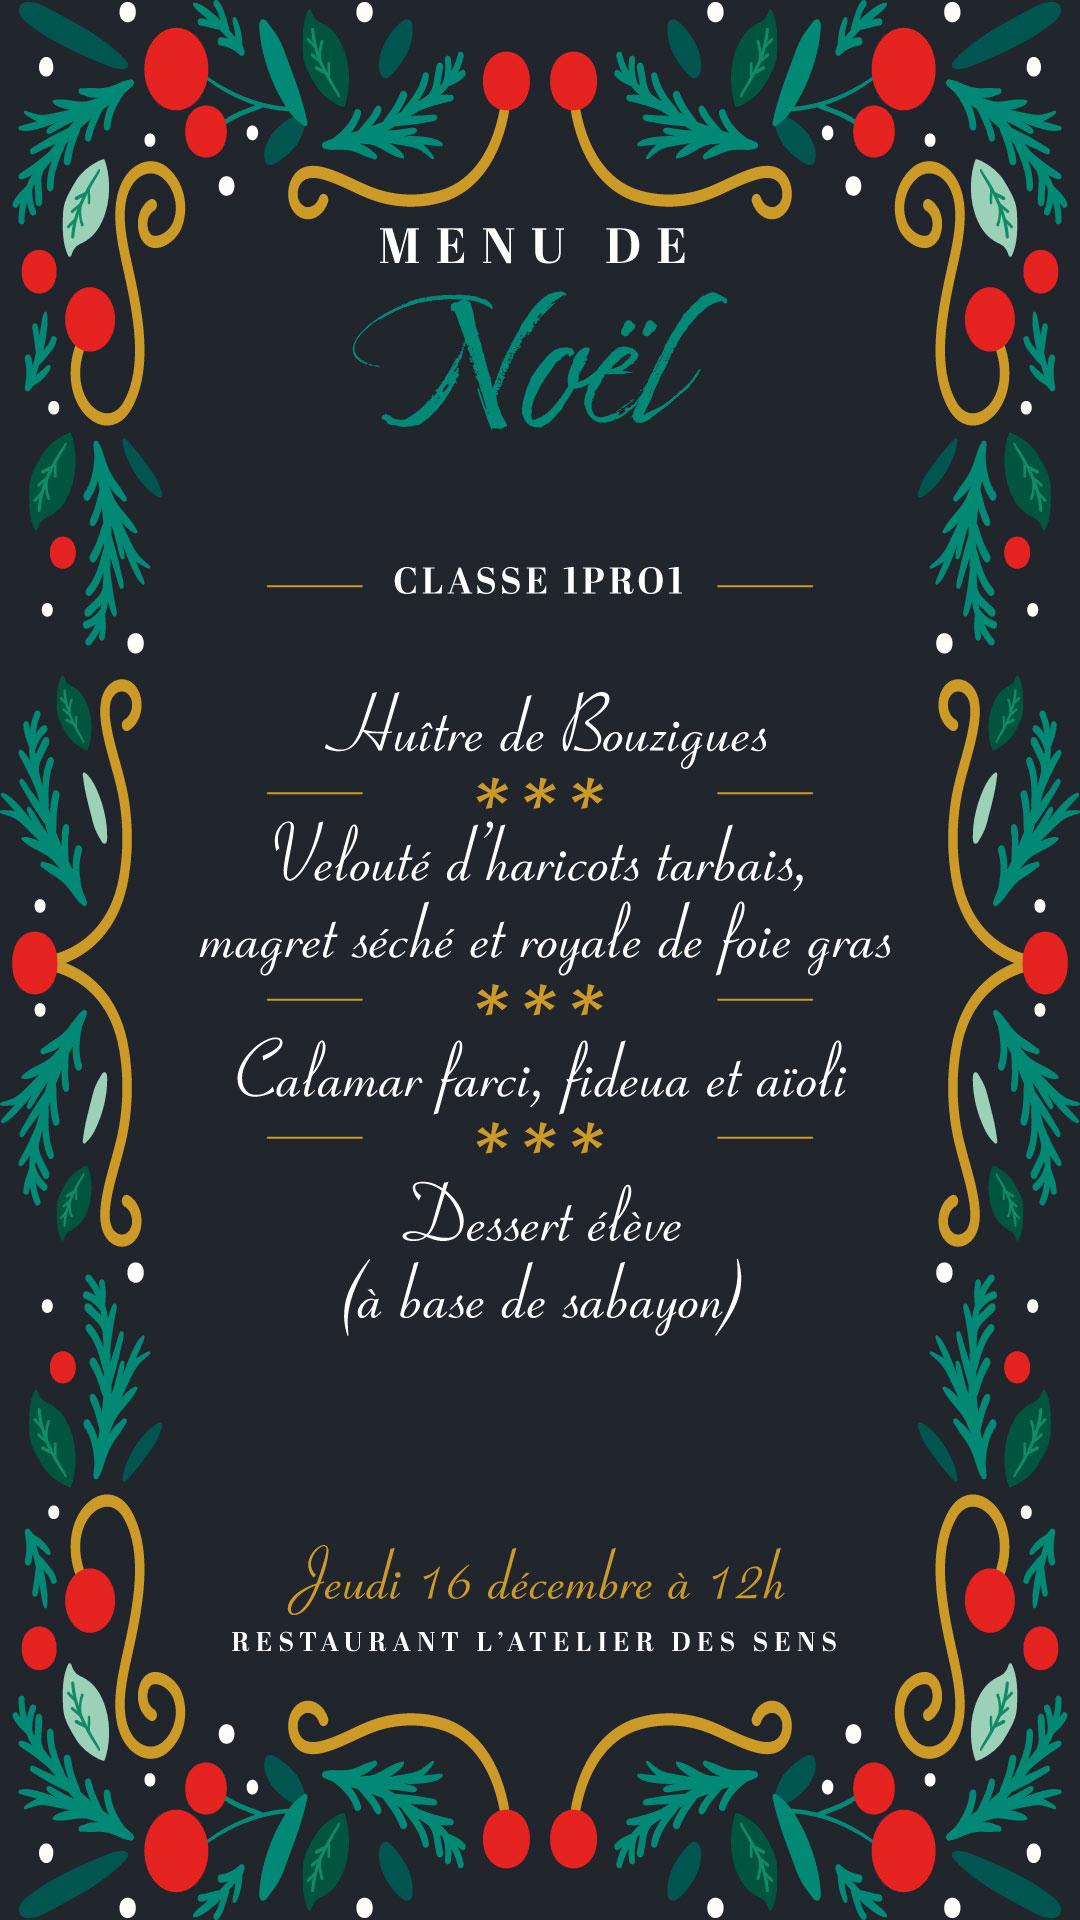 MENU DE
Noël
CLASSE 1PRO1
Huître de Bouzigues
***
Velouté d’haricots tarbais,
magret séché et royale de foie gras
***
Calamar farci, fideua et aïoli
***
Dessert élève
(à base de sabayon)
Jeudi 16 décembre à 12h
RESTAURANT L’ATELIER DES SENS